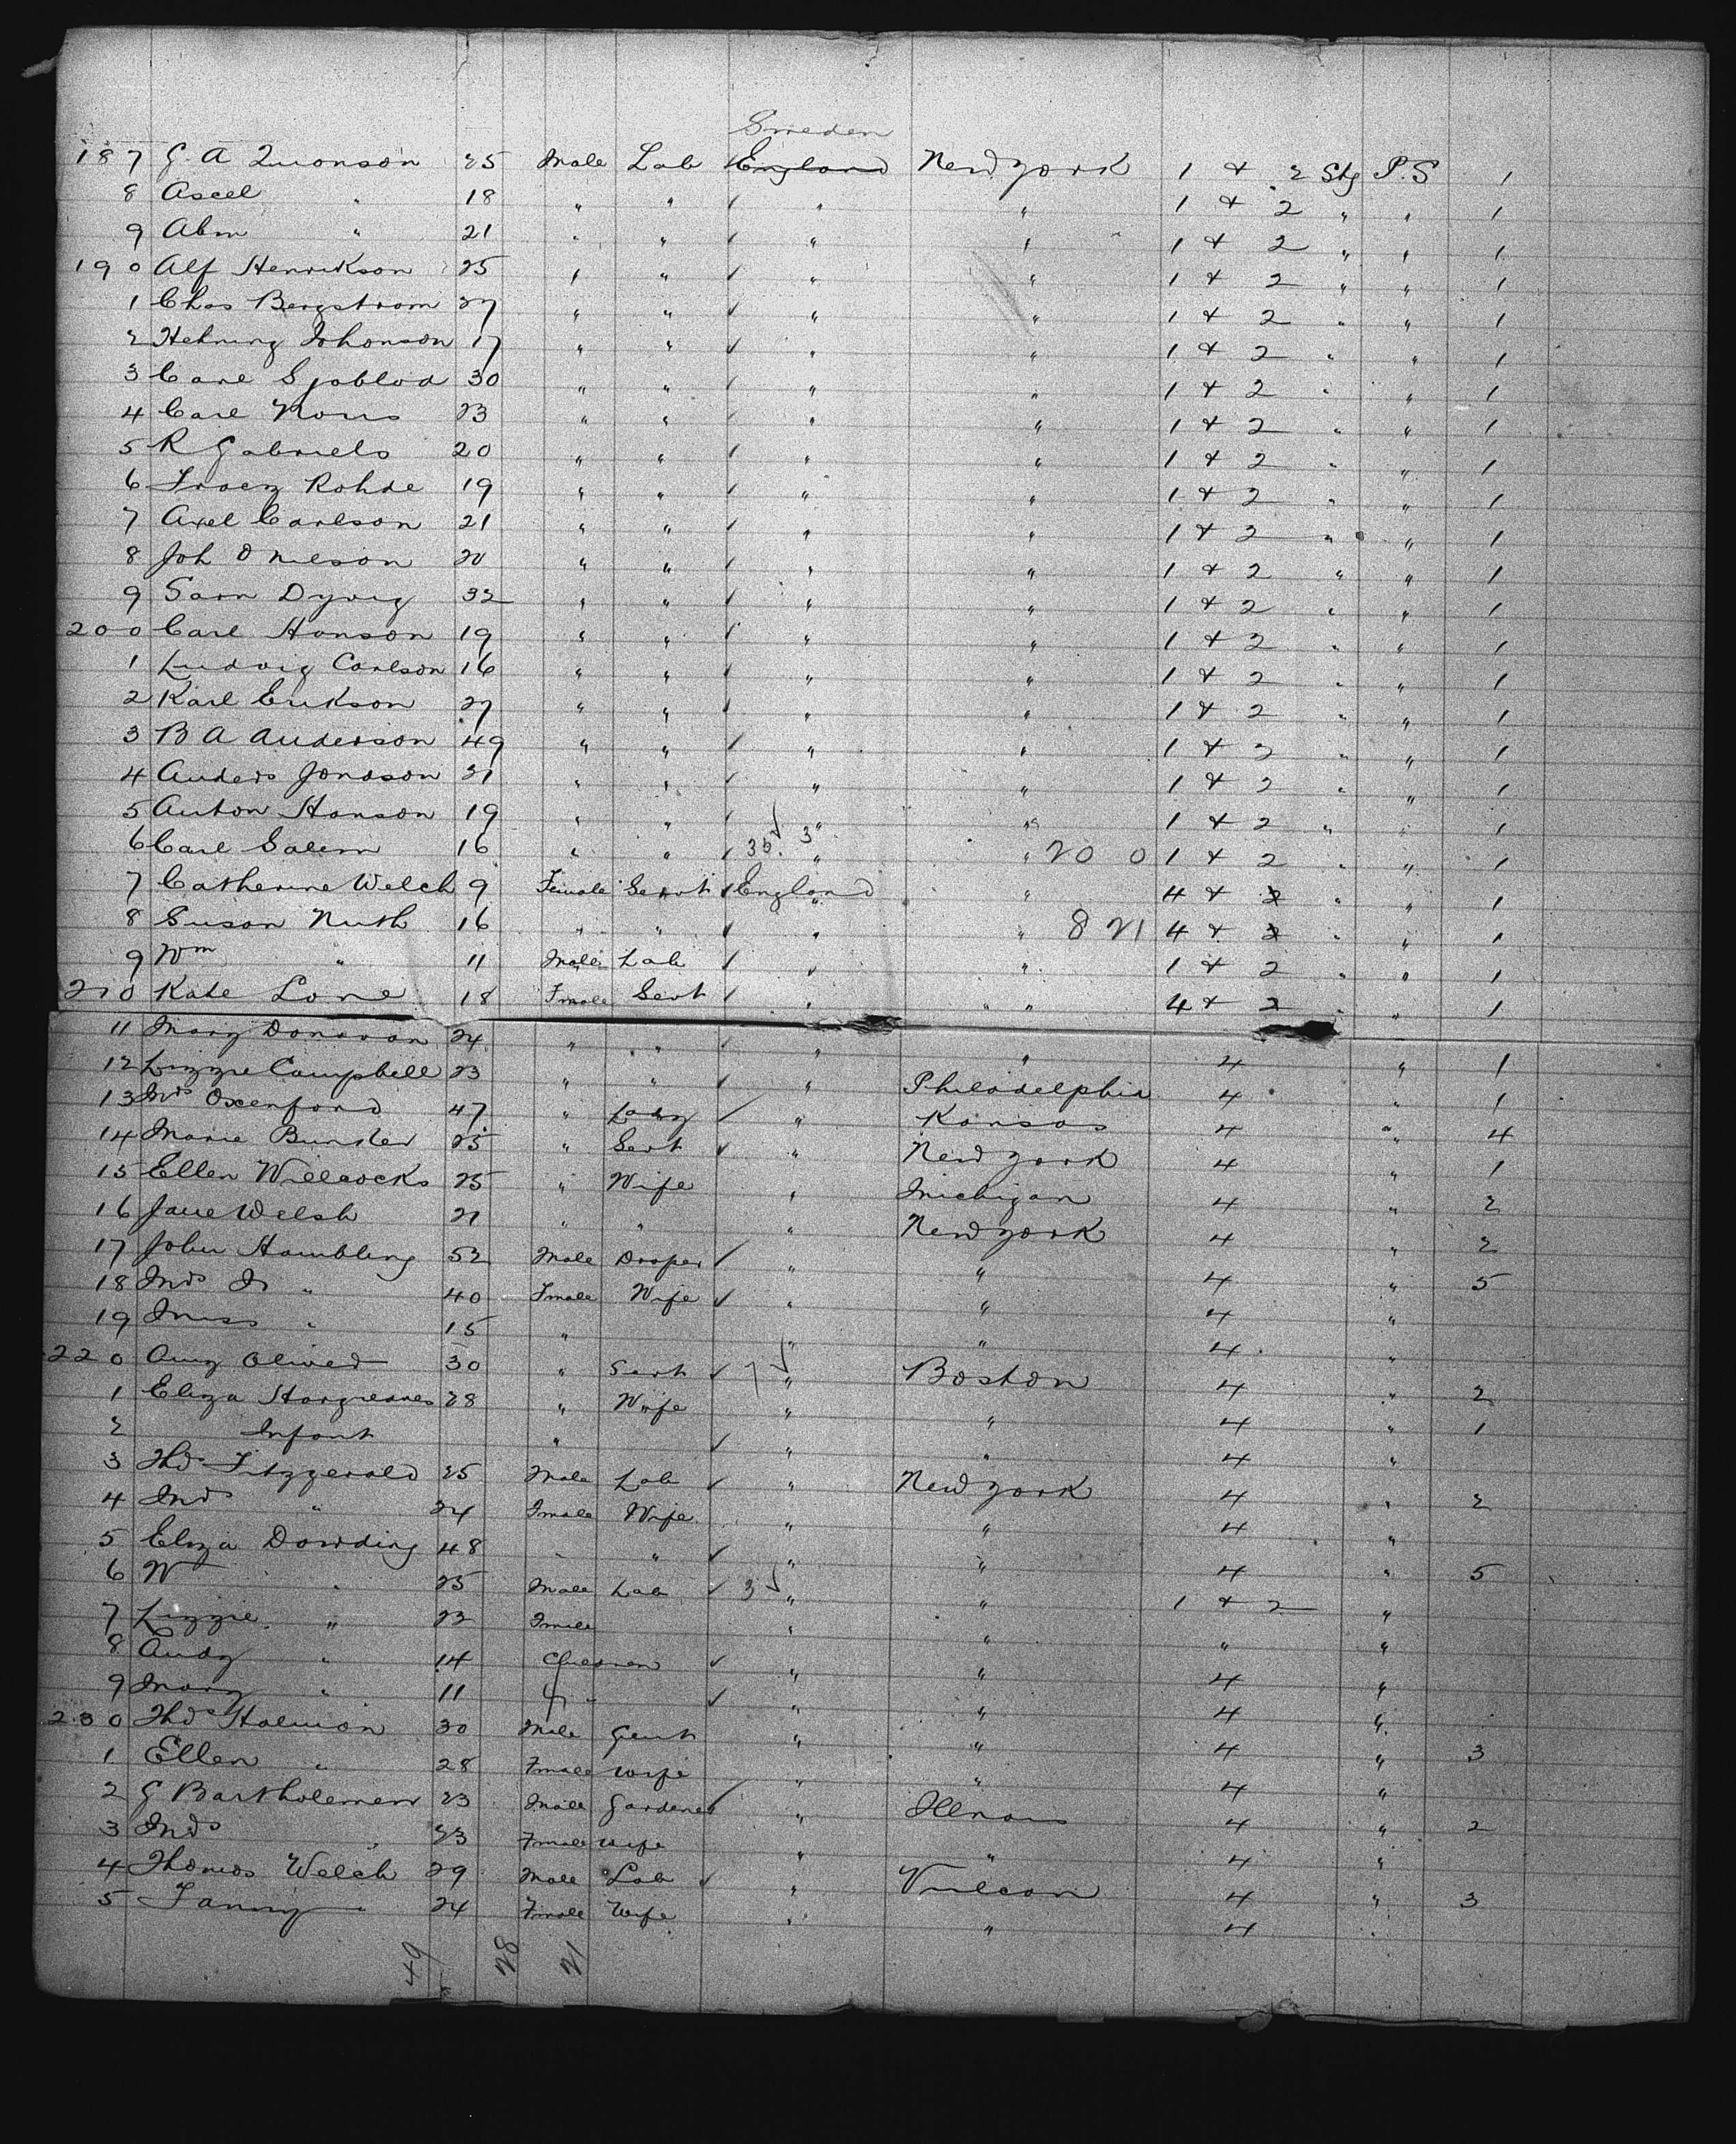 Sweden
187 G. A Quonson 25 Male Lab England New York 1 & 2 Stg P.S 1
8 Axcel " 18 " " " " 1 & 2 " " 1
9 Abm " 21 " " " " 1 & 2 " " 1
190 Alf Henrikson 25 " " " " 1 & 2 " " 1
1 Chas Bergstrom 27 " " " " 1 & 2 " " 1
2 Hehning Johonson 17 " " " " 1 & 2 " " 1
3 Carl Sjoblod 30 " " " " 1 & 2 " " 1
4 Carl Noris 23 " " " " 1 & 2 " " 1
5 R Gabriels 20 " " " " 1 & 2 " " 1
6 Rohde 19 " " " " 1 & 2 " " 1
7 Axel Carlson 21 " " " " 1 & 2 " " 1
8 Joh O Nelson 20 " " " " 1 & 2 " " 1
9 Sorn Dyrig 32 " " " " 1 & 2 " " 1
200 Carl Honson 19 " " " " 1 & 2 " " 1
1 Ludvig Carlson 16 " " " " 1 & 2 " " 1
2 Karl Erikson 27 " " " " 1 & 2 " " 1
3 B A Anderson 49 " " " " 1 & 2 " " 1
4 Anders Jonoson 21 " " " " 1 & 2 " " 1
5 Anton Hanson 19 " " " " 1 & 2 " " 1
6 Carl Salem 16 " " 36. 3 " " 20 0 1 & 2 " " 1
7 Catherine Welch 9 Female Servt England " 4 & 2 " " 1
8 Susan Nuth 16 " " " " 8 21 4 & 2 " " 1
9 Wm " 11 Male Lab " " 1 & 2 " " 1
210 Kate Lone 18 Fmale Servt " " 4 & 2 " " 1
11 Mary Donovan 24 " " " " 4 " 1
12 Lizzie Campbell 23 " " " Philadelphia 4 " 1
13 Mrs Oxenford 47 " Lady " Kansas 4 " 4
14 Marie Bunster 25 " Servt " New York 4 " 1
15 Ellen Willcocks 25 " Wife " Michigan 4 " 2
16 Jane Welsh 21 " " " New York 4 " 2
17 John Hambling 52 Male Draper " " 4 " 5
18 Mrs Jr " 40 Fmale Wife " " 4 "
19 Miss " 15 " " " 4 "
220 Amy Olived 30 " Servt 7 " Boston 4 " 2
1 Eliza Hargreaves 28 " Wife " " 4 " 1
2 Infant " " " 4 "
3 Thos Fitzgerald 25 Male Lab " New York 4 " 2
4 Mrs " 24 Fmale Wife " " 4 "
5 Eliza Dowding 48 " " " " 4 " 5
6 W " 25 Male Lab 3 " " 1 & 2 "
7 Lizzie " 23 Fmale " " " "
8 Andy " 14 Children " " 4 "
9 Mary " 11 " " " 4 "
230 Thos Holmon 30 Male Gent " " 4 " 3
1 Ellen " 28 Fmale wife " " 4 "
2 G Bartholemew 23 Male Gardener " Illnois 4 " 2
3 Mrs " 23 Fmale wife " " 4 "
4 Thomas Welch 29 Male Lab " Vulcan 4 " 3
5 Fanny " 24 Fmale Wife " " 4
49 28 21